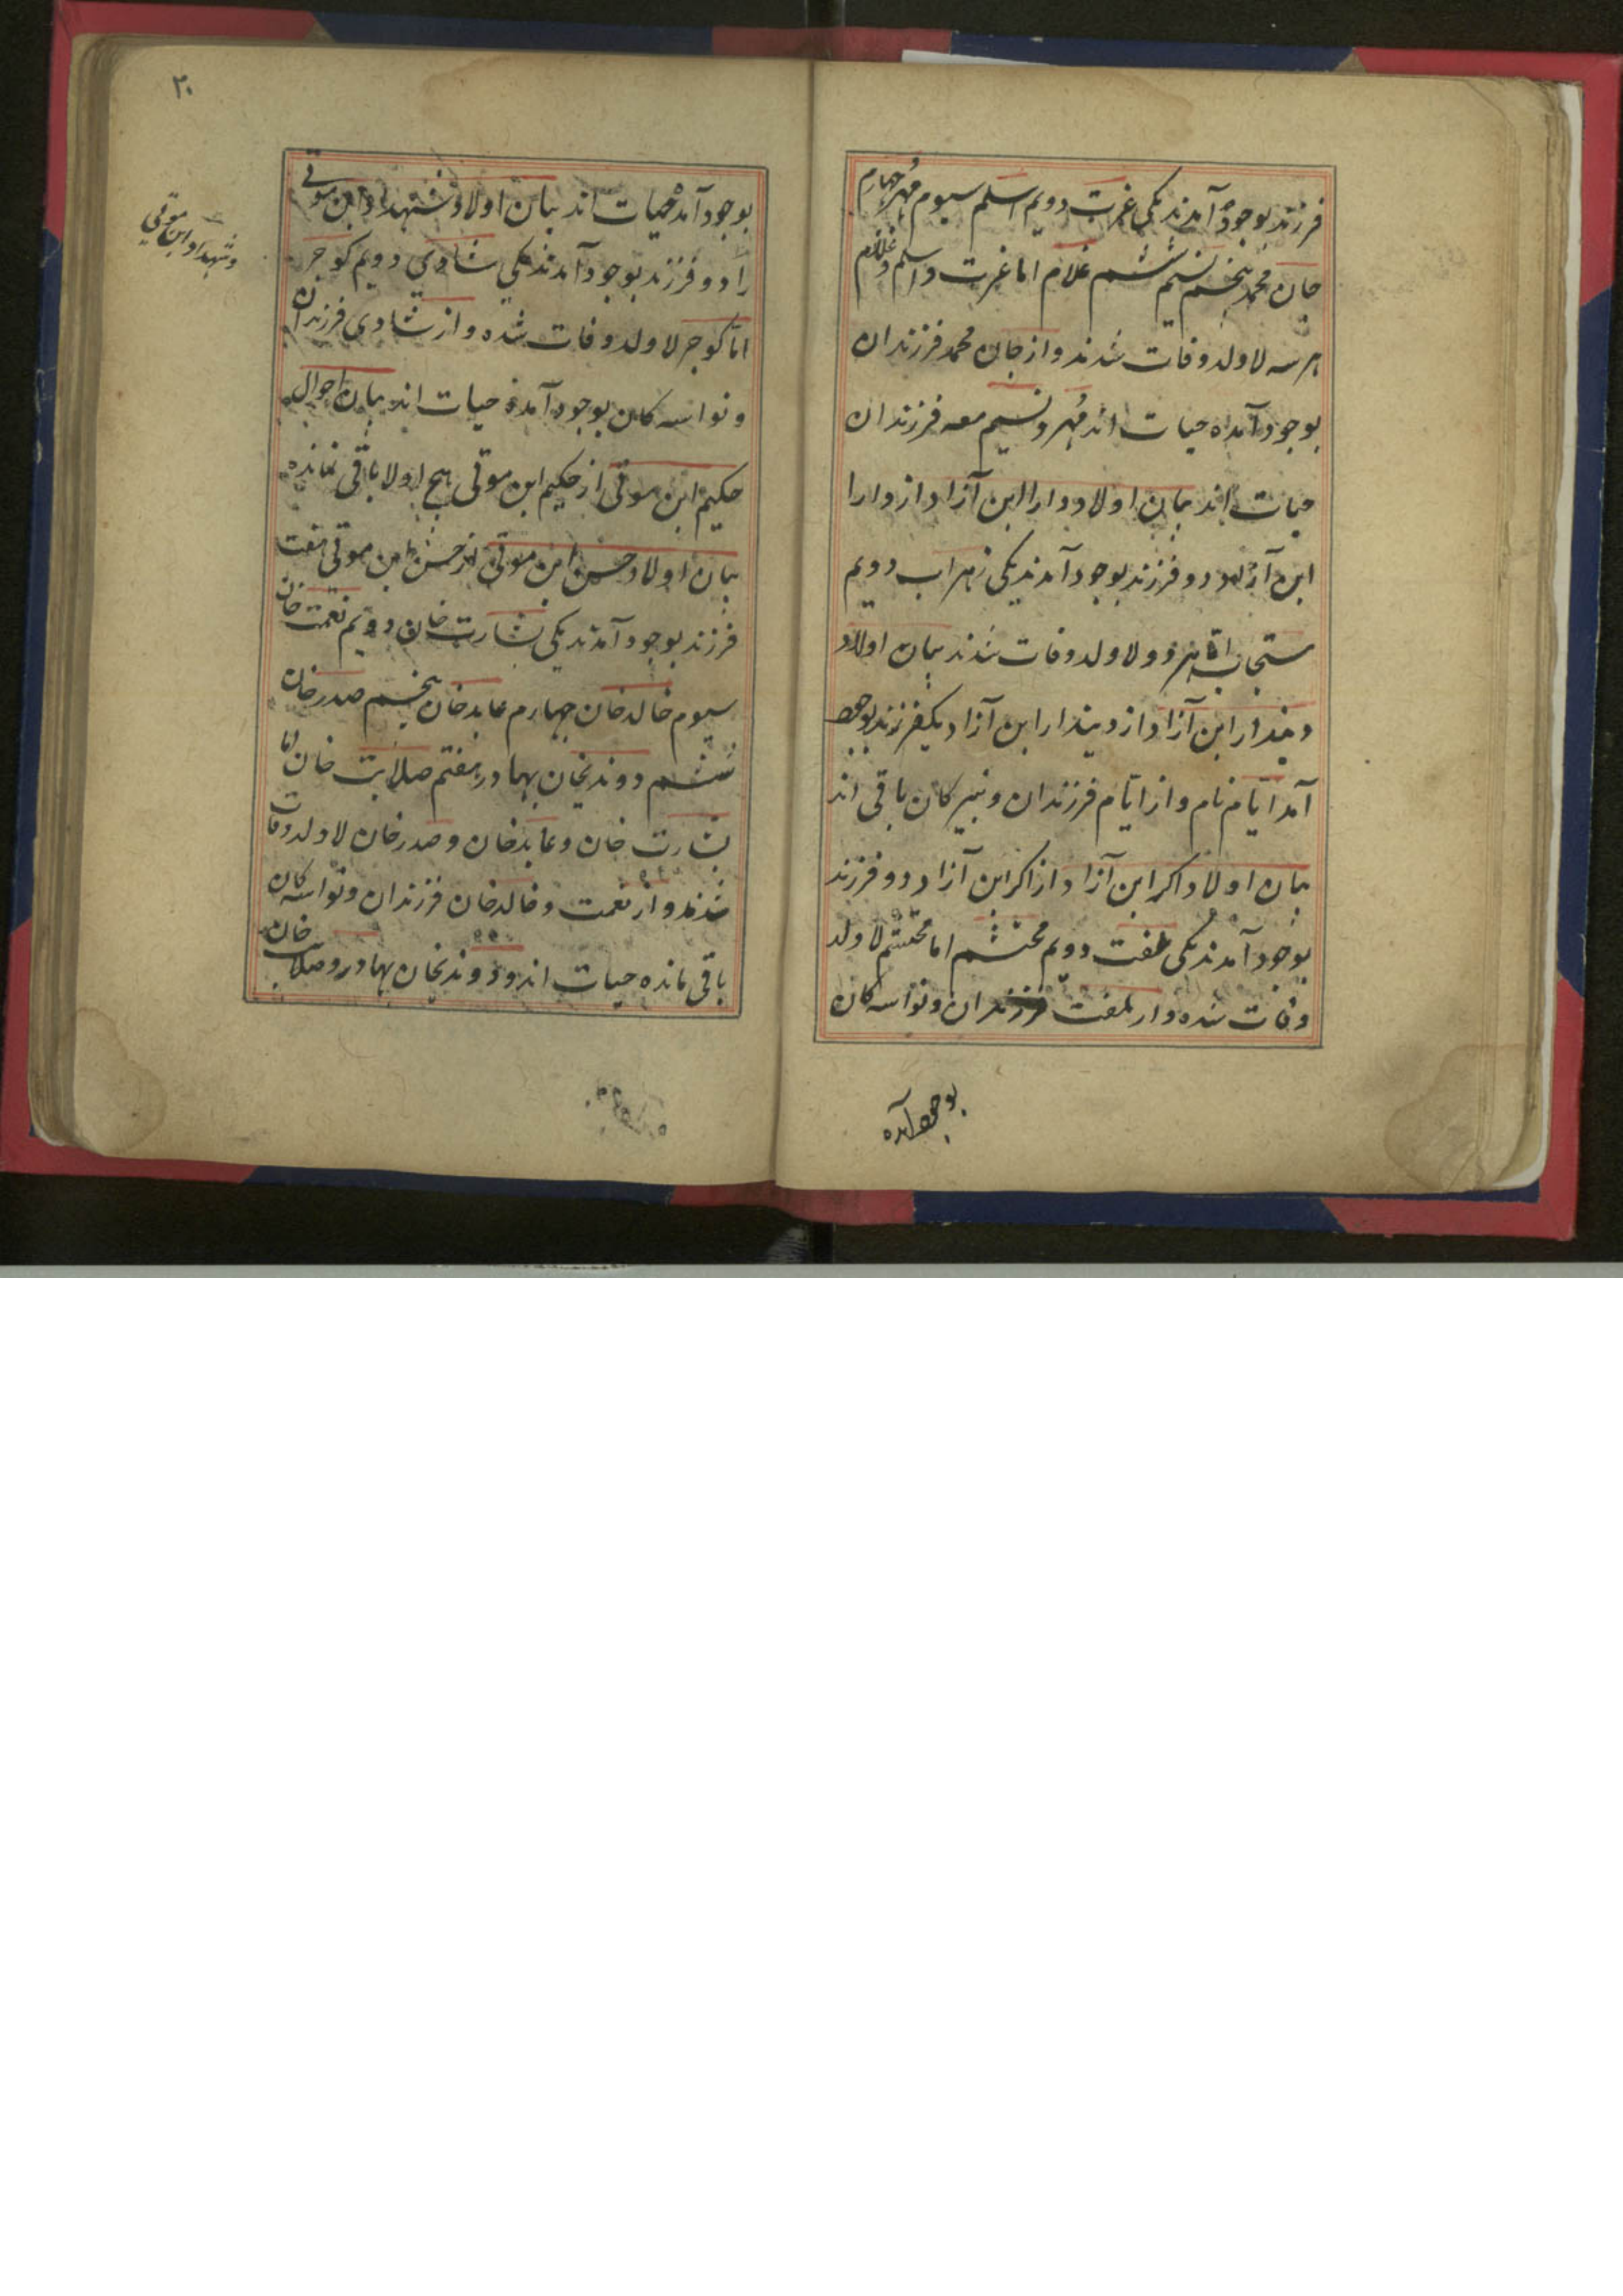 فرزند بوجود آمدند یکی غیرت دویم اسلم سیوم مهر چهارم
جان محمد پنجم نسیم ششم غلام اما غیرت و اسلم و غلام
هر سه لا ولد وفات شدند و از جان محمد فرزندان
بوجود آمده حیات اند مهر و نسیم معه فرزندان
حیات اند بیان اولاد دارا ابن آزاد از دارا
ابن آزاد دو فرزند بوجود آمدند یکی زهراب دویم
ستجاب اما هر دو لا ولد وفات شدند بیان اولاد
دیندار ابن آزاد از دیندار ابن آزاد یکفرزند بوجود
آمد ایام نام و از ایام فرزندان و نبیرکان باقی اند
بیان اولاد اکر ابن آزاد از اکر ابن آزاد دو فرزند
بوجود آمدند یکی ملفت دویم محتشم اما محتشم لا ولد
وفات شده و از ملفت فرزندان و نواسه کان
بوجود آمده
۲۰
بوجود آمده حیات اند بیان اولاد شهداد ابن موقی
را دو فرزند بوجود آمدند یکی شادی دویم کوجر
اما کوجر لا ولد وفات شده و از شادی فرزندان
و نواسه کان بوجود آمده حیات اند بیان احوال
حکیم ابن موقی از حکیم ابن موقی هیچ اولاد باقی نمانده
بیان اولاد حسن ابن موقی از حسن ابن موقی هفت
فرزند بوجود آمدند یکی بشارت خان دویم نعمت خان
سیوم خالد خان چهارم عابد خان پنجم صدر خان
ششم دوندیخان بهادر هفتم صلابت خان اما
بشارت خان و عابد خان و صدر خان لا ولد وفات
شدند و از نعمت و خالد خان فرزندان و نواسه کان
باقی مانده حیات اند و دوندیخان بهادر و صلابت خان
و شهداد ابن موقی